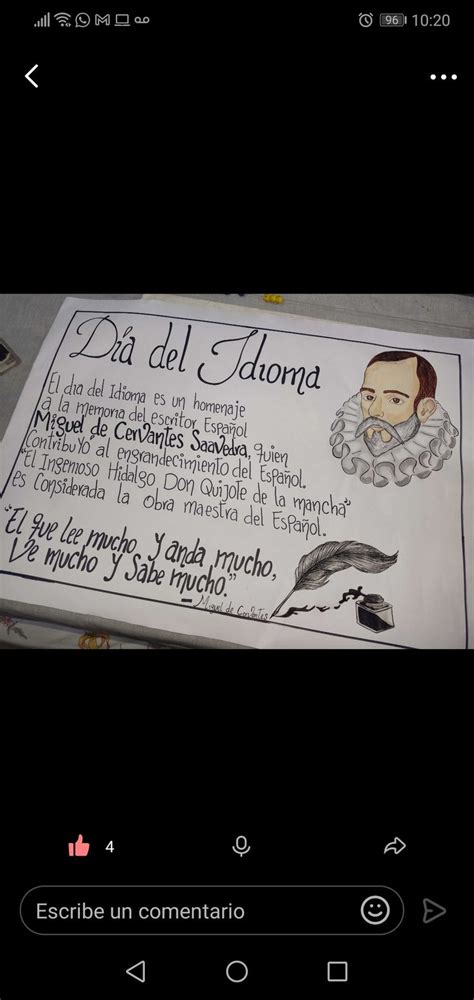 96 10:20
Día del Idioma
El dia del Idioma es un homenaje
a la memoria del escritor Español
Miguel de Cervantes Saavedra, quien
Contribuyó al engrandecimiento del Español.
"El Ingenioso Hidalgo Don Quijote de la mancha"
es Considerada la obra maestra del Español.
"El que lee mucho y anda mucho,
Ve mucho y Sabe mucho."
— Miguel de Cervantes
4
Escribe un comentario